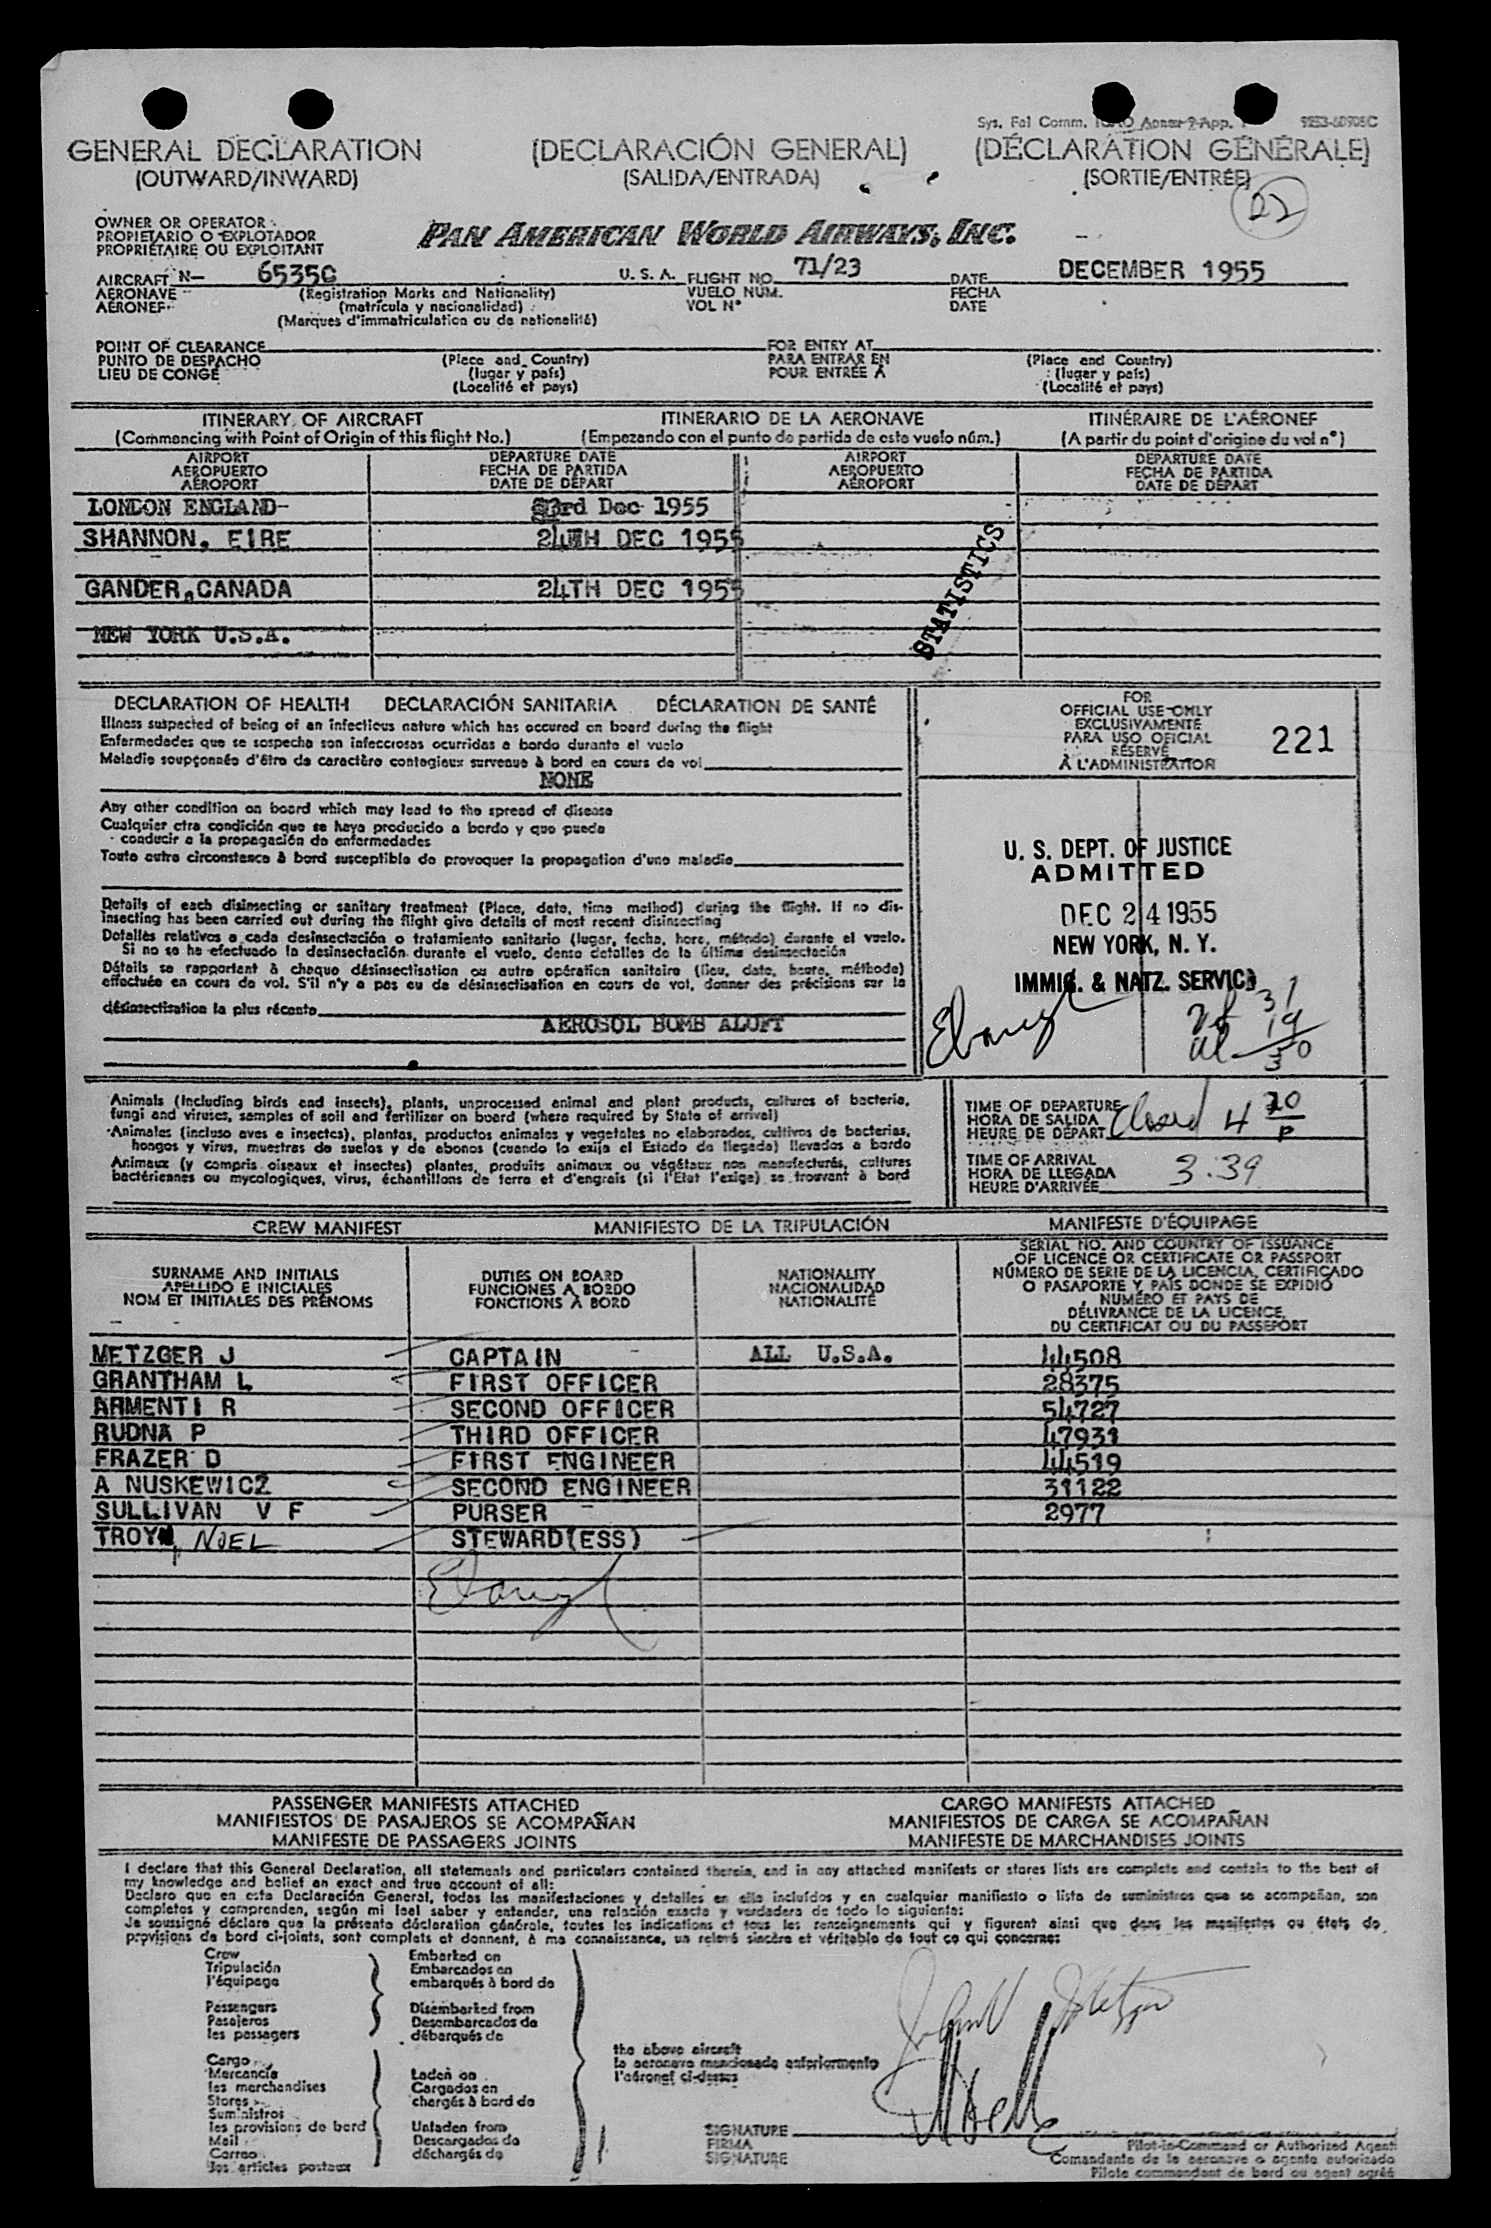 Sys. Fal Comm. ICAO Annex 9 App. 1
GENERAL DECLARATION (DECLARACIÓN GENERAL) (DÉCLARATION GÉNÉRALE)
(OUTWARD/INWARD) (SALIDA/ENTRADA) (SORTIE/ENTRÉE)
22
OWNER OR OPERATOR
PROPIETARIO O EXPLOTADOR
PROPRIÉTAIRE OU EXPLOITANT
PAN AMERICAN WORLD AIRWAYS, INC.
AIRCRAFT N- 6535C U.S.A. FLIGHT NO. 71/23 DATE DECEMBER 1955
AERONAVE (Registration Marks and Nationality) VUELO NUM. FECHA
AÉRONEF (matrícula y nacionalidad) VOL N° DATE
(Marques d'immatriculation ou de nationalité)
POINT OF CLEARANCE FOR ENTRY AT
PUNTO DE DESPACHO (Place and Country) PARA ENTRAR EN (Place and Country)
LIEU DE CONGÉ (lugar y país) POUR ENTRÉE À (lugar y país)
(Localité et pays) (Localité et pays)
ITINERARY OF AIRCRAFT ITINERARIO DE LA AERONAVE ITINÉRAIRE DE L'AÉRONEF
(Commencing with Point of Origin of this flight No.) (Empezando con el punto de partida de este vuelo núm.) (A partir du point d'origine du vol n°)
AIRPORT DEPARTURE DATE AIRPORT DEPARTURE DATE
AEROPUERTO FECHA DE PARTIDA AEROPUERTO FECHA DE PARTIDA
AÉROPORT DATE DE DÉPART AÉROPORT DATE DE DÉPART
LONDON ENGLAND 23rd Dec 1955
SHANNON, EIRE 24TH DEC 1955
GANDER, CANADA 24TH DEC 1955
NEW YORK U.S.A.
STATISTICS
DECLARATION OF HEALTH DECLARACIÓN SANITARIA DÉCLARATION DE SANTÉ
Illness suspected of being of an infectious nature which has occured on board during the flight
Enfermedades que se sospecha son infecciosas ocurridas a bordo durante el vuelo
Maladie soupçonnée d'être de caractère contagieux survenue à bord en cours de vol
NONE
Any other condition on board which may lead to the spread of disease
Cualquier otra condición que se haya producido a bordo y que pueda
conducir a la propagación de enfermedades
Toute autre circonstance à bord susceptible de provoquer la propagation d'une maladie
Details of each disinsecting or sanitary treatment (Place, date, time method) during the flight. If no dis-
insecting has been carried out during the flight give details of most recent disinsecting
Detalles relativos a cada desinsectación o tratamiento sanitario (lugar, fecha, hora, método) durante el vuelo.
Si no se ha efectuado la desinsectación durante el vuelo, dense detalles de la última desinsectación
Détails se rapportant à chaque désinsectisation ou autre opération sanitaire (lieu, date, heure, méthode)
effectuée en cours de vol. S'il n'y a pas eu de désinsectisation en cours de vol, donner des précisions sur la
désinsectisation la plus récente
AEROSOL BOMB ALOFT
FOR
OFFICIAL USE ONLY
EXCLUSIVAMENTE
PARA USO OFICIAL
RÉSERVÉ
À L'ADMINISTRATION
221
U. S. DEPT. OF JUSTICE
ADMITTED
DEC 24 1955
NEW YORK, N. Y.
IMMIG. & NATZ. SERVICE
31
19
30
Animals (Including birds and insects), plants, unprocessed animal and plant products, cultures of bacteria,
fungi and viruses, samples of soil and fertilizer on board (where required by State of arrival)
Animales (incluso aves e insectos), plantas, productos animales y vegetales no elaborados, cultivos de bacterias,
hongos y virus, muestras de suelos y de abonos (cuando lo exija el Estado de llegada) llevados a bordo
Animaux (y compris oiseaux et insectes) plantes, produits animaux ou végétaux non manufacturés, cultures
bactériennes ou mycologiques, virus, échantillons de terre et d'engrais (si l'Etat l'exige) se trouvant à bord
TIME OF DEPARTURE
HORA DE SALIDA
HEURE DE DÉPART
Closed 4 20 P
TIME OF ARRIVAL
HORA DE LLEGADA
HEURE D'ARRIVÉE
3:39
CREW MANIFEST MANIFIESTO DE LA TRIPULACIÓN MANIFESTE D'ÉQUIPAGE
SURNAME AND INITIALS
APELLIDO E INICIALES
NOM ET INITIALES DES PRÉNOMS
DUTIES ON BOARD
FUNCIONES A BORDO
FONCTIONS À BORD
NATIONALITY
NACIONALIDAD
NATIONALITÉ
SERIAL NO. AND COUNTRY OF ISSUANCE
OF LICENCE OR CERTIFICATE OR PASSPORT
NÚMERO DE SERIE DE LA LICENCIA, CERTIFICADO
O PASAPORTE Y PAÍS DONDE SE EXPIDIÓ
NUMÉRO ET PAYS DE
DÉLIVRANCE DE LA LICENCE,
DU CERTIFICAT OU DU PASSEPORT
METZGER J CAPTAIN ALL U.S.A. 44508
GRANTHAM L FIRST OFFICER 28375
ARMENTI R SECOND OFFICER 54727
RUDNA P THIRD OFFICER 47931
FRAZER D FIRST ENGINEER 44519
A NUSKEWICZ SECOND ENGINEER 31122
SULLIVAN V F PURSER 2977
TROY, NOEL STEWARD(ESS)
PASSENGER MANIFESTS ATTACHED CARGO MANIFESTS ATTACHED
MANIFIESTOS DE PASAJEROS SE ACOMPAÑAN MANIFIESTOS DE CARGA SE ACOMPAÑAN
MANIFESTE DE PASSAGERS JOINTS MANIFESTE DE MARCHANDISES JOINTS
I declare that this General Declaration, all statements and particulars contained therein, and in any attached manifests or stores lists are complete and contain to the best of
my knowledge and belief an exact and true account of all:
Declaro que en esta Declaración General, todas las manifestaciones y detalles en ella incluídos y en cualquier manifiesto o lista de suministros que se acompañan, son
completos y comprenden, según mi leal saber y entender, una relación exacta y verdadera de todo lo siguiente:
Je soussigné déclare que la présente déclaration générale, toutes les indications et tous les renseignements qui y figurent ainsi que dans les manifestes ou états de
provisions de bord ci-joints, sont complets et donnent, à ma connaissance, un relevé sincère et véritable de tout ce qui concerne:
Crew Embarked on
Tripulación Embarcados en
l'équipage embarqués à bord de
Passengers Disembarked from
Pasajeros Desembarcados de
les passagers débarqués de
the above aircraft
la aeronave mencionada anteriormente
l'aéronef ci-dessus
Cargo
Mercancía Laden on
les marchandises Cargados en
Stores chargés à bord de
Suministros
les provisions de bord Unladen from
Mail Descargados de
Correo déchargés de
les articles postaux
SIGNATURE
FIRMA
SIGNATURE
Pilot-in-Command or Authorized Agent
Comandante de la aeronave o agente autorizado
Pilote commandant de bord ou agent agréé